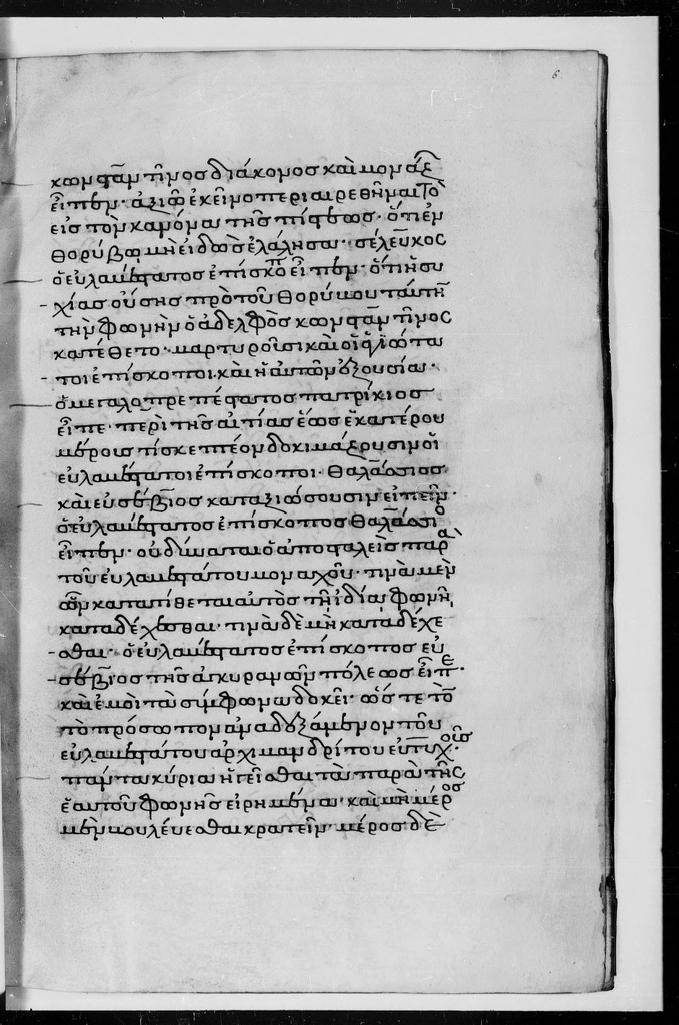 6
κωνσταντῖνος διάκονος καὶ μονάζ
εἶπεν· ἀξιῶ ἐκεῖνο περιαιρεθῆναι τὸ
εἰς τὸν κανόνα τῆς πίστεως· ὅτι ἐν
θορύβω μὴ εἰδὼς ἐλάλησα· σέλευκος
ὁ εὐλαβέστατος ἐπίσκοπ εἶπεν· ὅτι ἡσυ
χίας οὔσης πρὸ τοῦ θορύβου ταύτη
τὴν φωνὴν ὁ ἀδελφὸς κωνσταντῖνος
κατέθετο· μαρτυροῦσι καὶ οἱ φιλώτα
τοι ἐπίσκοποι καὶ ἡ αὐτῶν ἐξουσία·
ὁ μεγαλοπρεπέστατος πατρίκιος
εἶπε· περὶ τῆς αἰτίας ἕως ἑκατέρου
μέρους τί σκεπτέον δοκιμάζουσιν οἱ
εὐλαβέστατοι ἐπίσκοποι· θαλάσσιος
καὶ εὐσέβιος καταξιώσουσιν εἰπεῖν·
ὁ εὐλαβέστατος ἐπίσκοπος θαλάσσιο
εἶπεν· οὐ δύναται ὁ ἀποσταλεὶς παρὰ
τοῦ εὐλαβεστάτου μοναχοῦ· τινὰ μὲν
ὧν κατατίθεται αὐτὸς τῇ ἰδία φωνῆ
καταδέχεσθαι· τινὰ δὲ μὴ καταδέχε
σθαι· ὁ εὐλαβέστατος ἐπίσκοπος εὐ
σέβιος τῆς ἀγκυρανῶν πόλεως εἶπε·
καὶ ἐμοὶ τὰ σύμφωνα δοκεῖ· ὥστε τὸ
τὸ πρόσωπον ἀναδεξάμενον τοῦ
εὐλαβεστάτου ἀρχιμανδρίτου εὐτυχοῦς
πάντα κύρια ἡγεῖσθαι τὰ παρὰ τῆς
ἑαυτοῦ φωνῆς εἰρημένα· καὶ μὴ μέρος
μὲν βουλεύεσθαι κρατεῖν· μέρος δὲ